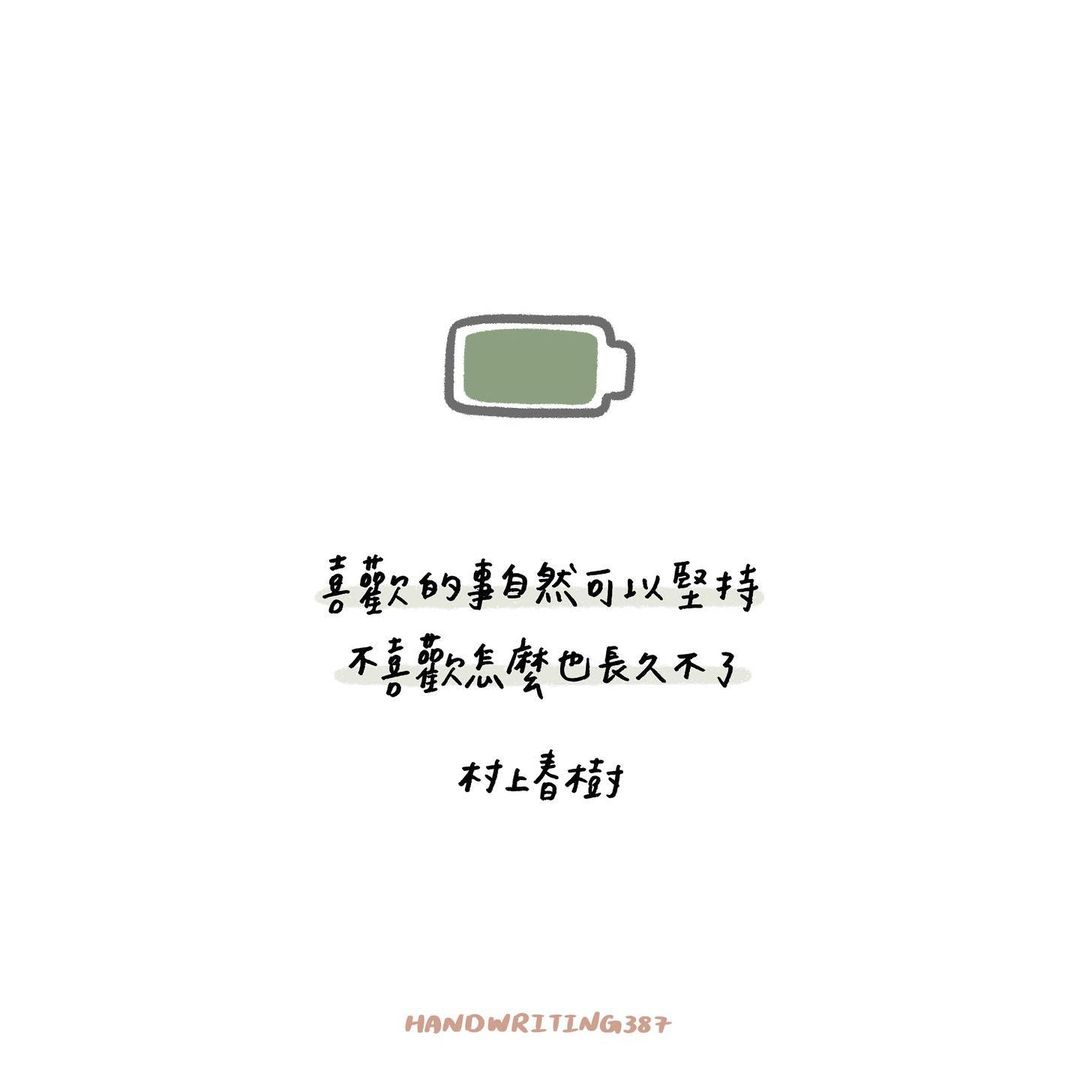 喜歡的事自然可以堅持
不喜歡怎麼也長久不了
村上春樹
HANDWRITING387